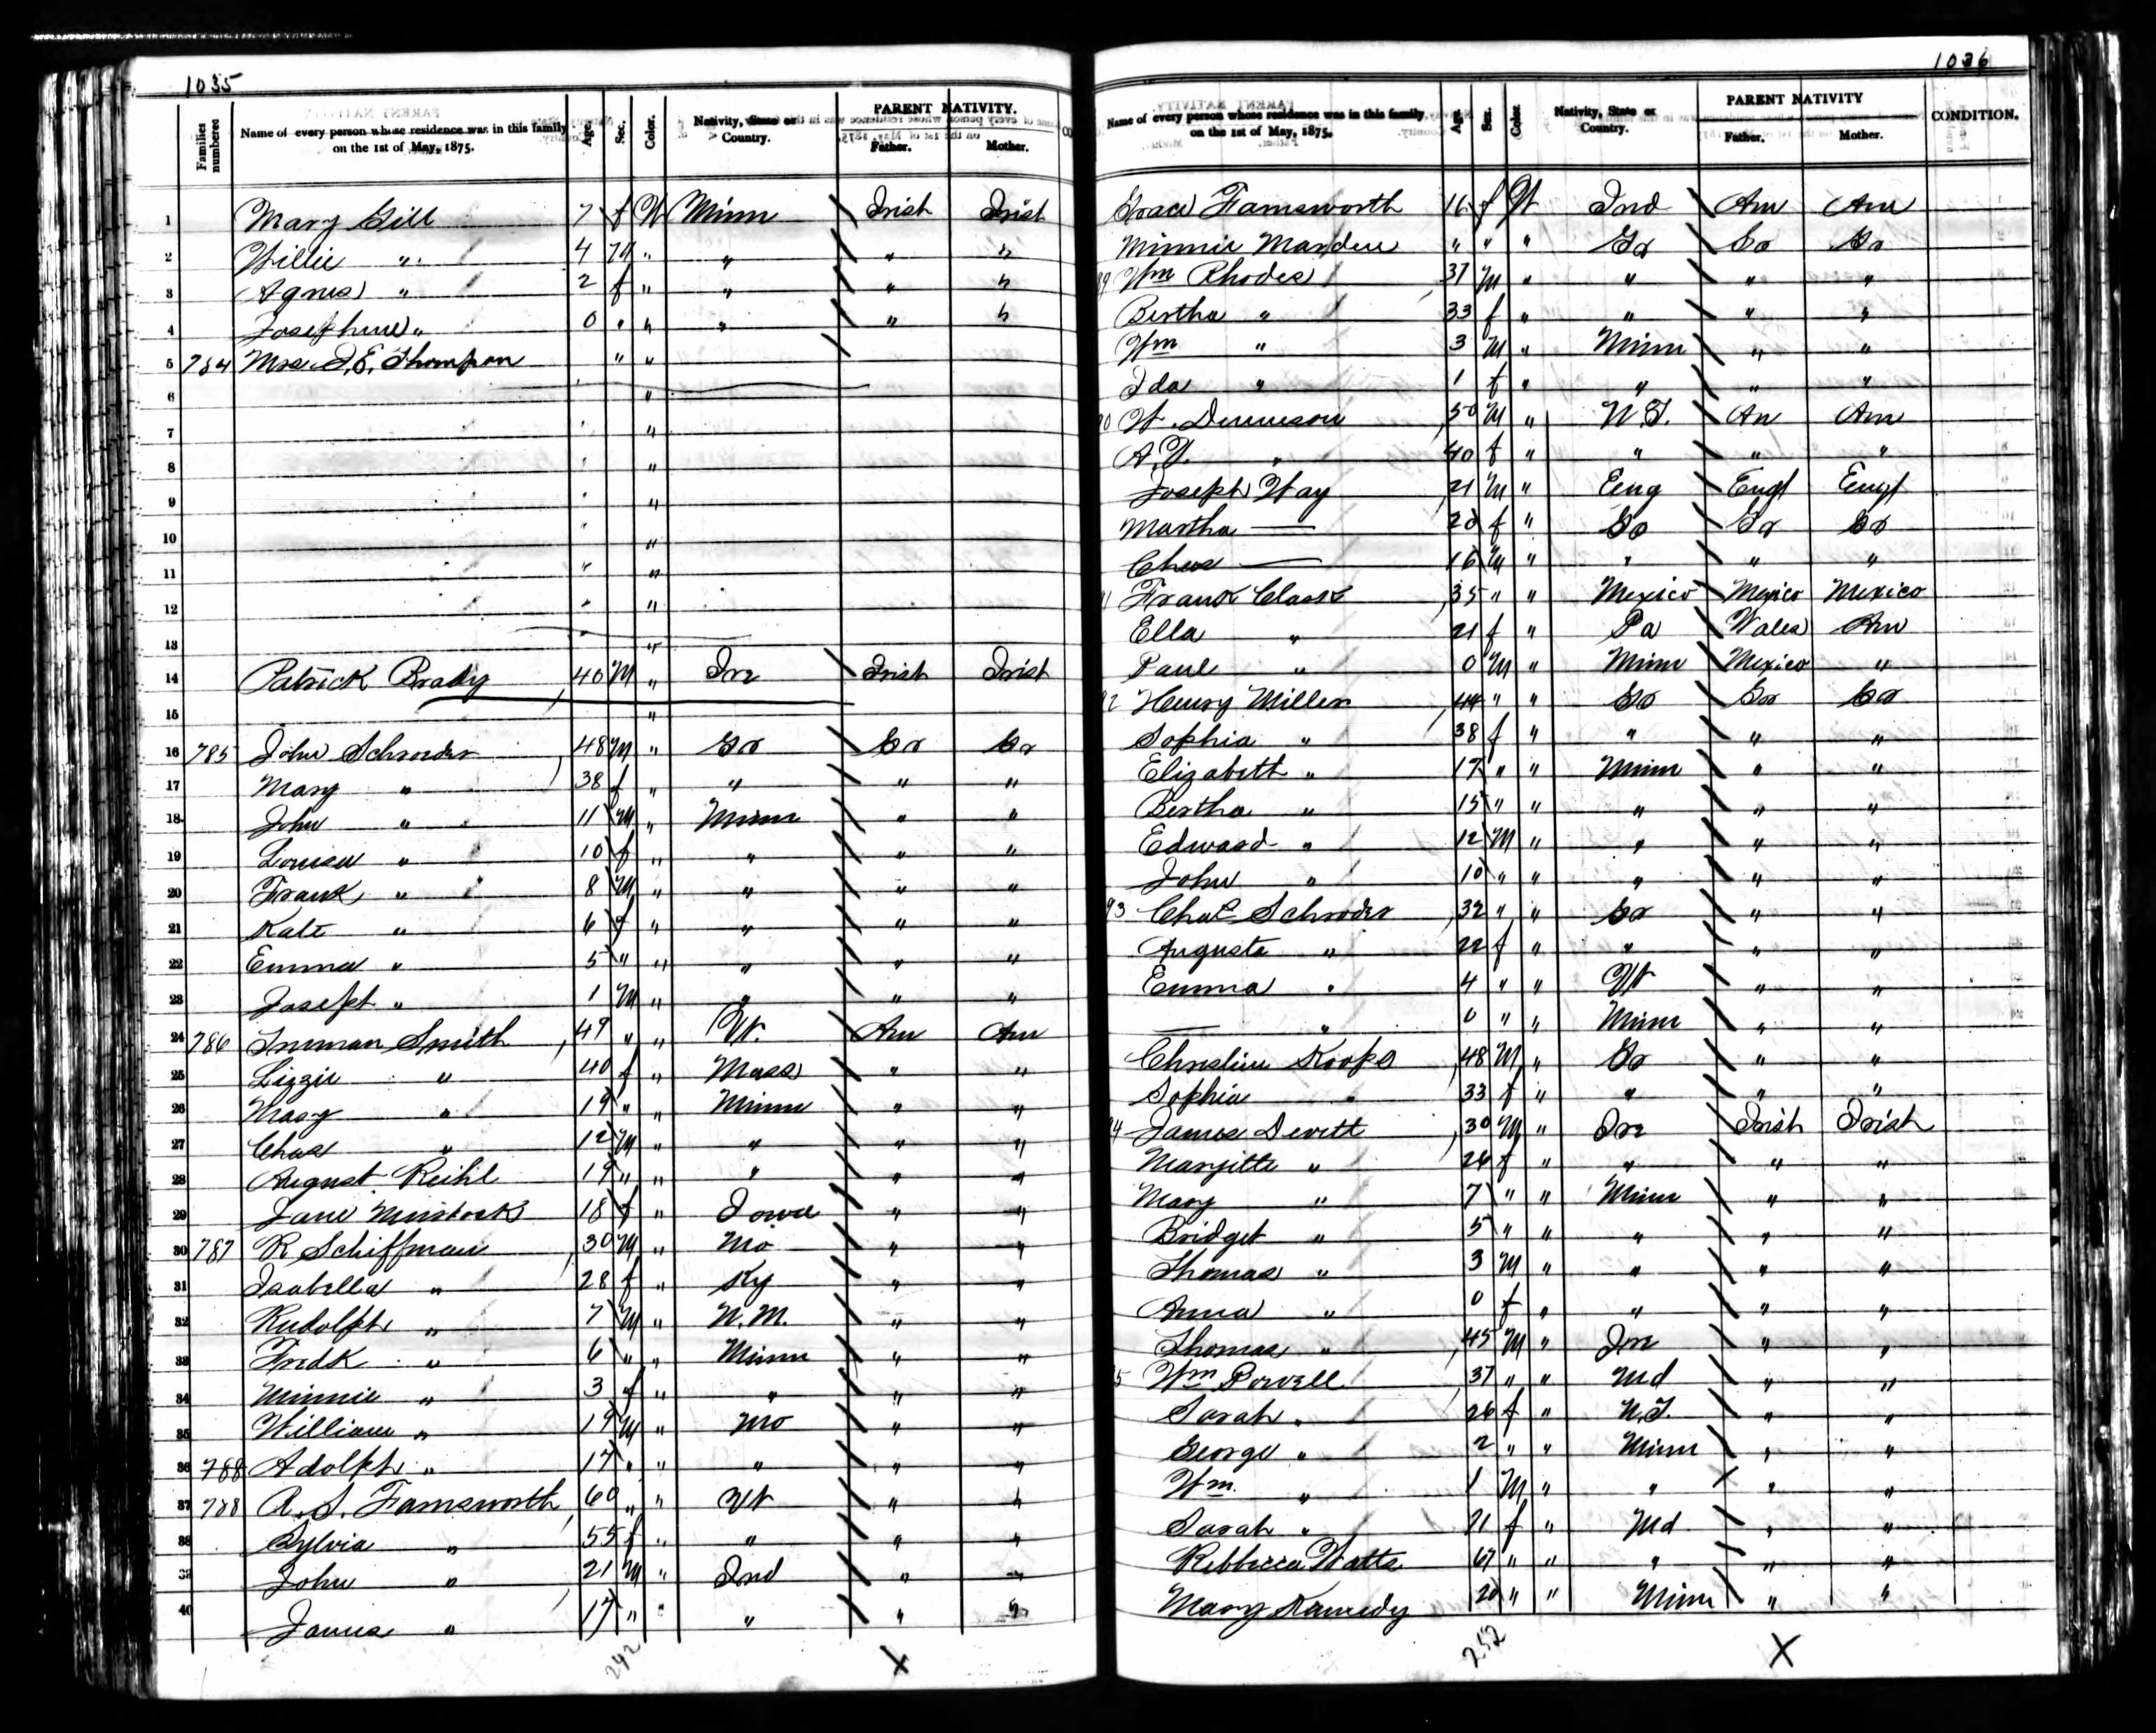 1035
Families numbered
Name of every person whose residence was in this family on the 1st of May, 1875.
Age. Sex. Color.
Nativity, State or Country.
PARENT NATIVITY.
Father. Mother.
1 Mary Gill 7 f W Minn Irish Irish
2 Willie " 4 M " " " "
3 Agnes " 2 f " " " "
4 Josephine " 0 " " " " "
5 784 Mrs. J. E. Thompson " "
6 "
7 "
8 "
9 "
10 "
11 " "
12 " "
13 " "
14 Patrick Brady 40 M " Ire Irish Irish
15 "
16 785 John Schroeder 48 M " Gr Gr Gr
17 Mary " 38 f " " " "
18 John " 11 M " Minn " "
19 Louisa " 10 f " " " "
20 Frank " 8 M " " " "
21 Kate " 6 f " " " "
22 Emma " 5 " " " " "
23 Joseph " 1 M " " " "
24 786 Truman Smith 49 " " Vt. Am Am
25 Lizzie " 40 f " Mass " "
26 Mary " 19 " " Minn " "
27 Chas " 12 M " " " "
28 August Reihl 19 " " " " "
29 Jane 18 f " Iowa " "
30 787 R Schiffman 30 M " Mo " "
31 Isabella " 28 f " Ky " "
32 Rudolph " 7 M " N.M. " "
33 Fredk " 6 " " Minn " "
34 Minnie " 3 f " " " "
35 William " 19 M " Mo " "
36 788 Adolph " 17 " " " " "
37 788 R. S. Farnsworth 60 " " Vt " "
38 Sylvia " 55 f " " " "
39 John " 21 M " Ind " "
40 James " 17 " " " " "
242 X
1036
Name of every person whose residence was in this family on the 1st of May, 1875.
Age. Sex. Color.
Nativity, State or Country.
PARENT NATIVITY
Father. Mother.
CONDITION.
Grace Farnsworth 16 f W Ind Am Am
Minnie Marden " " " Gr Gr Gr
89 Wm Rhodes 37 M " " " "
Bertha " 33 f " " " "
Wm " 3 M " Minn " "
Ida " 1 f " " " "
90 W. Dennison 50 M " N.J. Am Am
A.Y. " 40 f " " " "
Joseph Way 21 M " Eng Engl Engl
Martha — 20 f " Do Do Do
Chas — 16 M " " " "
Frank Clark 35 " " Mexico Mexico Mexico
Ella " 21 f " Pa Wales Am
Paul " 0 M " Minn Mexico "
92 Henry Miller 44 " " Gr Gr Gr
Sophia " 38 f " " " "
Elizabeth " 17 " " Minn " "
Bertha " 15 " " " " "
Edward " 12 M " " " "
John " 10 " " " " "
93 Chas Schroder 32 " " Gr " "
Augusta " 22 f " " " "
Emma " 4 " " " "
— " 0 " " Minn " "
Christian Koops 48 M " Gr " "
Sophia " 33 f " " " "
94 James Devitt 30 M " Ire Irish Irish
" 26 f " " " "
Mary " 7 " " Minn " "
Bridget " 5 " " " " "
Thomas " 3 M " " " "
Anna " 0 f " " " "
Thomas " 45 M " Ire " "
5 Wm Powell 37 " " Md " "
Sarah " 26 f " N.J. " "
George " 2 " " Minn " "
Wm. " 1 M " " " "
Sarah " 71 f " Md " "
Rebbecca Watts 67 " " " " "
Mary Kennedy 20 " " Minn " "
252 X